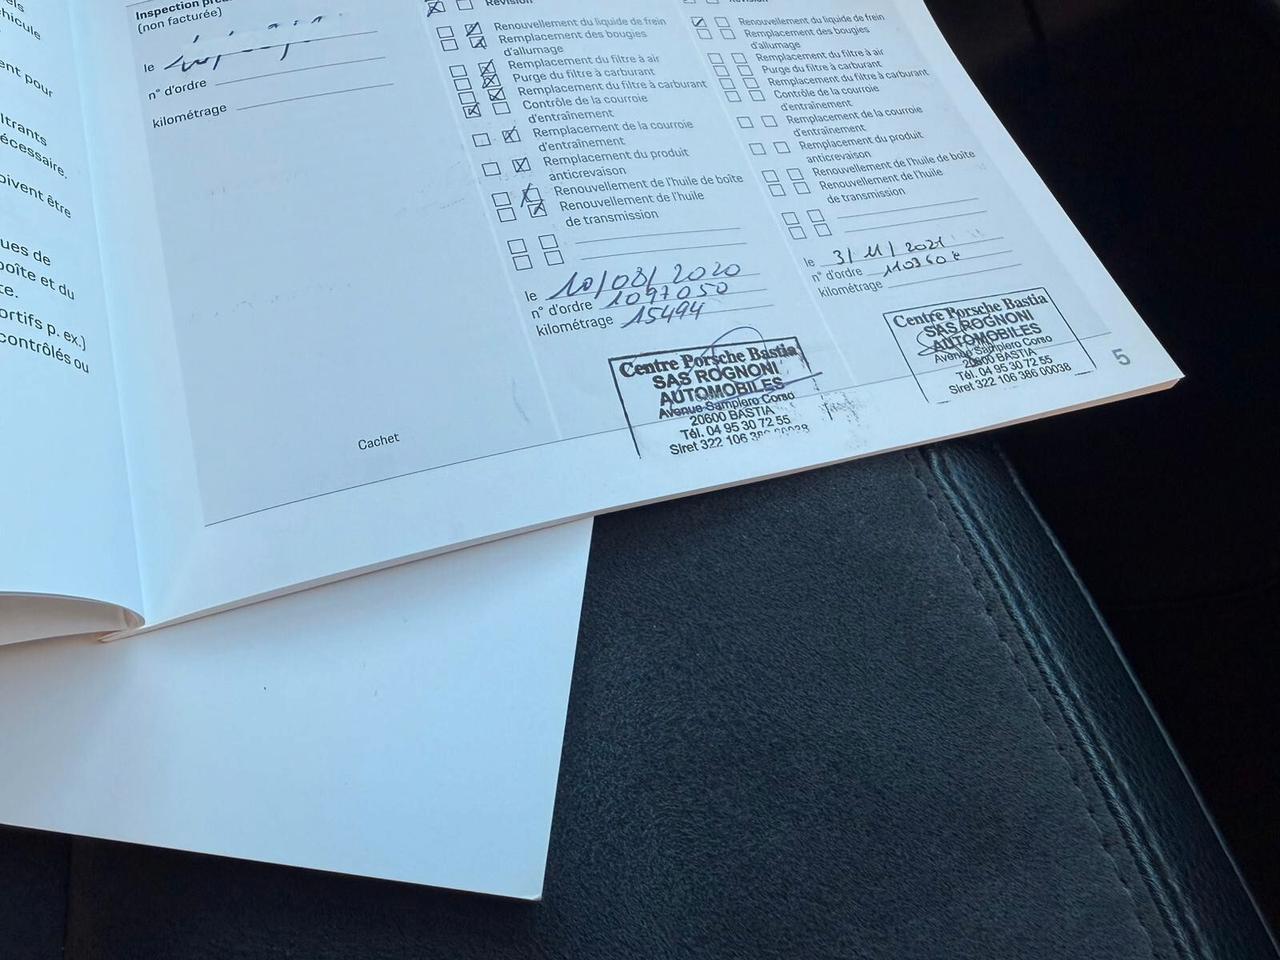 els
éhicule
ent pour
ltrants
écessaire.
oivent être
ues de
oîte et du
te.
ortifs p. ex.)
contrôlés ou
Inspection
(non facturée)
le
n° d'ordre
kilométrage
Cachet
Révision
Renouvellement du liquide de frein
Remplacement des bougies
d'allumage
Remplacement du filtre à air
Purge du filtre à carburant
Remplacement du filtre à carburant
Contrôle de la courroie
d'entraînement
Remplacement de la courroie
d'entraînement
Remplacement du produit
anticrevaison
Renouvellement de l'huile de boîte
Renouvellement de l'huile
de transmission
le 10/08/2020
n° d'ordre 1097050
kilométrage 15494
Centre Porsche Bastia
SAS ROGNONI
AUTOMOBILES
Avenue Sampiero Corso
20600 BASTIA
Tél. 04 95 30 72 55
Siret 322 106 386 00038
Révision
Renouvellement du liquide de frein
Remplacement des bougies
d'allumage
Remplacement du filtre à air
Purge du filtre à carburant
Remplacement du filtre à carburant
Contrôle de la courroie
d'entraînement
Remplacement de la courroie
d'entraînement
Remplacement du produit
anticrevaison
Renouvellement de l'huile de boîte
Renouvellement de l'huile
de transmission
le 3/11/2021
n° d'ordre
kilométrage
Centre Porsche Bastia
SAS ROGNONI
AUTOMOBILES
Avenue Sampiero Corso
20600 BASTIA
Tél. 04 95 30 72 55
Siret 322 106 386 00038
5